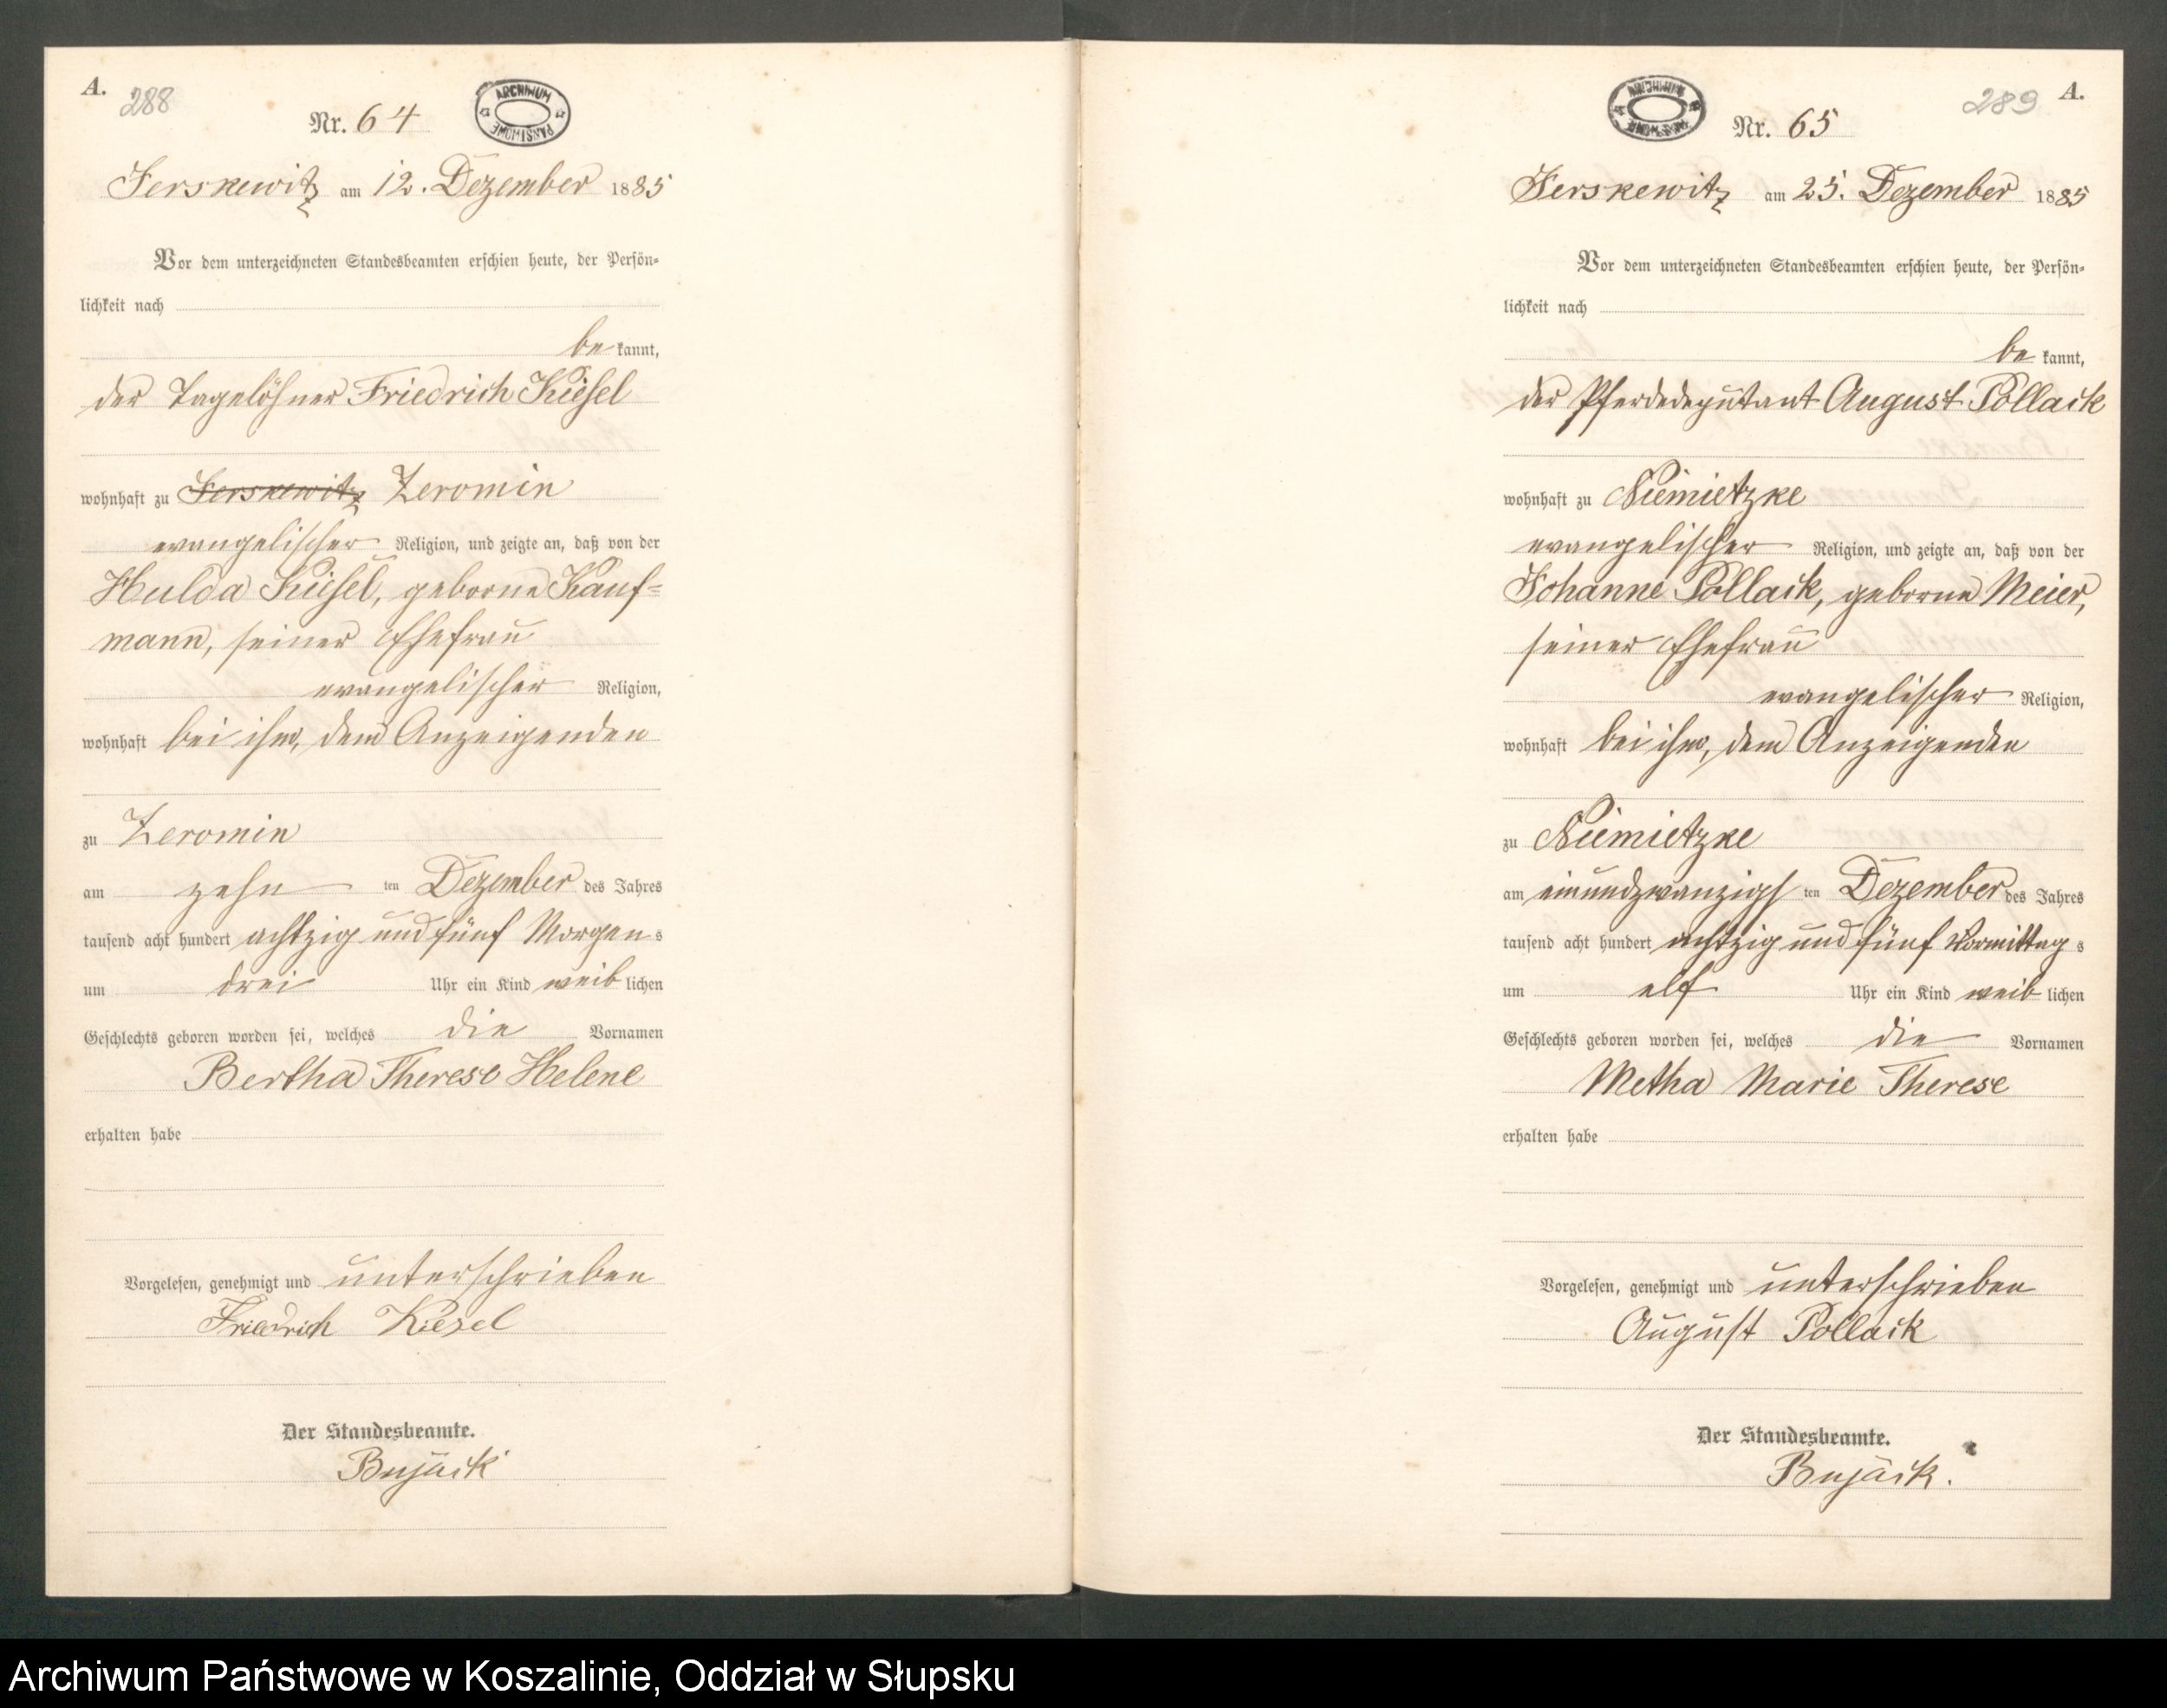 A.
288
Nr. 64
ARCHIWUM PAŃSTWOWE
Jerskewitz am 12. Dezember 1885
Vor dem unterzeichneten Standesbeamten erschien heute, der Persön-
lichkeit nach
be kannt,
der Tagelöhner Friedrich Kiesel
wohnhaft zu Jerskewitz Zeromin
evangelischer Religion, und zeigte an, daß von der
Hulda Kiesel, geborne Kauf-
mann, seiner Ehefrau
evangelischer Religion,
wohnhaft bei ihm, dem Anzeigenden
zu Zeromin
am zehn ten Dezember des Jahres
tausend acht hundert achtzig und fünf Morgens
um drei Uhr ein Kind weib lichen
Geschlechts geboren worden sei, welches die Vornamen
Bertha Therese Helene
erhalten habe
Vorgelesen, genehmigt und unterschrieben
Friedrich Kiesel
Der Standesbeamte.
Bujack
A.
289
Nr. 65
ARCHIWUM PAŃSTWOWE
Jerskewitz am 25. Dezember 1885
Vor dem unterzeichneten Standesbeamten erschien heute, der Persön-
lichkeit nach
be kannt,
der Pferdedeputant August Pollack
wohnhaft zu Niemietzke
evangelischer Religion, und zeigte an, daß von der
Johanne Pollack, geborne Meier,
seiner Ehefrau
evangelischer Religion,
wohnhaft bei ihm, dem Anzeigenden
zu Niemietzke
am einundzwanzigs ten Dezember des Jahres
tausend acht hundert achtzig und fünf Vormittags
um elf Uhr ein Kind weib lichen
Geschlechts geboren worden sei, welches die Vornamen
Metha Marie Therese
erhalten habe
Vorgelesen, genehmigt und unterschrieben
August Pollack
Der Standesbeamte.
Bujack.
Archiwum Państwowe w Koszalinie, Oddział w Słupsku